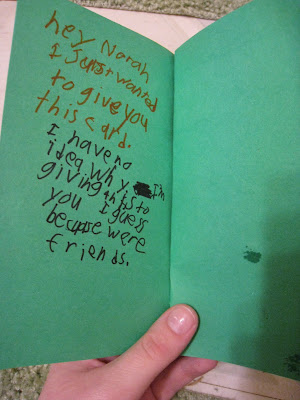 hey Norah
I Just wanted
to give you
this card.
I have no
idea why. I'm
giving this to
you I guess
because were
friends.